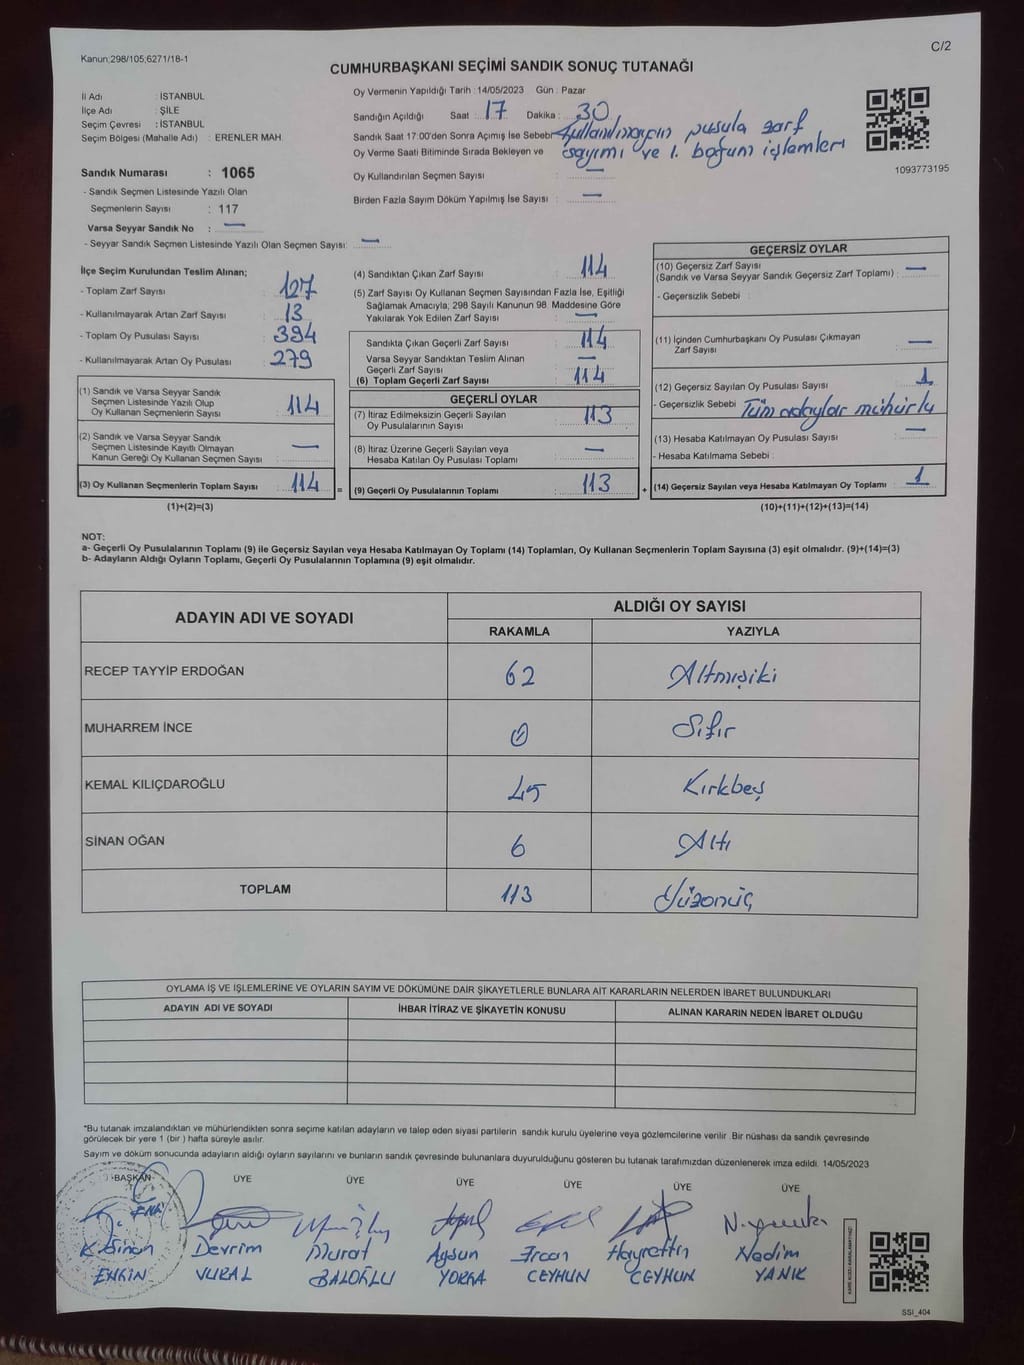 Kanun;298/105;6271/18-1
C/2
CUMHURBAŞKANI SEÇİMİ SANDIK SONUÇ TUTANAĞI
İl Adı : İSTANBUL
İlçe Adı : ŞİLE
Seçim Çevresi : İSTANBUL
Seçim Bölgesi (Mahalle Adı) : ERENLER MAH.
Oy Vermenin Yapıldığı Tarih : 14/05/2023 Gün : Pazar
Sandığın Açıldığı Saat : 17 Dakika : 30
Sandık Saat 17:00'den Sonra Açımış İse Sebebi Kullanılmayan pusula zarf
sayımı ve 1. boğum işlemleri
Oy Verme Saati Bitiminde Sırada Bekleyen ve
Oy Kullandırılan Seçmen Sayısı —
Birden Fazla Sayım Döküm Yapılmış İse Sayısı : —
1093773195
Sandık Numarası : 1065
- Sandık Seçmen Listesinde Yazılı Olan
Seçmenlerin Sayısı : 117
Varsa Seyyar Sandık No : —
- Seyyar Sandık Seçmen Listesinde Yazılı Olan Seçmen Sayısı: —
İlçe Seçim Kurulundan Teslim Alınan;
- Toplam Zarf Sayısı : 127
- Kullanılmayarak Artan Zarf Sayısı : 13
- Toplam Oy Pusulası Sayısı : 394
- Kullanılmayarak Artan Oy Pusulası : 279
(1) Sandık ve Varsa Seyyar Sandık
Seçmen Listesinde Yazılı Olup
Oy Kullanan Seçmenlerin Sayısı : 114
(2) Sandık ve Varsa Seyyar Sandık
Seçmen Listesinde Kayıtlı Olmayan
Kanun Gereği Oy Kullanan Seçmen Sayısı : —
(3) Oy Kullanan Seçmenlerin Toplam Sayısı : 114
(1)+(2)=(3)
(4) Sandıktan Çıkan Zarf Sayısı : 114
(5) Zarf Sayısı Oy Kullanan Seçmen Sayısından Fazla İse, Eşitliği
Sağlamak Amacıyla; 298 Sayılı Kanunun 98. Maddesine Göre
Yakılarak Yok Edilen Zarf Sayısı : —
Sandıkta Çıkan Geçerli Zarf Sayısı : 114
Varsa Seyyar Sandıktan Teslim Alınan
Geçerli Zarf Sayısı : —
(6) Toplam Geçerli Zarf Sayısı : 114
GEÇERLİ OYLAR
(7) İtiraz Edilmeksizin Geçerli Sayılan
Oy Pusulalarının Sayısı : 113
(8) İtiraz Üzerine Geçerli Sayılan veya
Hesaba Katılan Oy Pusulası Toplamı : —
= (9) Geçerli Oy Pusulalarının Toplamı : 113
GEÇERSİZ OYLAR
(10) Geçersiz Zarf Sayısı
(Sandık ve Varsa Seyyar Sandık Geçersiz Zarf Toplamı) : —
- Geçersizlik Sebebi :
(11) İçinden Cumhurbaşkanı Oy Pusulası Çıkmayan
Zarf Sayısı : —
(12) Geçersiz Sayılan Oy Pusulası Sayısı : 1
- Geçersizlik Sebebi : Tüm adaylar mühürlü
(13) Hesaba Katılmayan Oy Pusulası Sayısı : —
- Hesaba Katılmama Sebebi :
+ (14) Geçersiz Sayılan veya Hesaba Katılmayan Oy Toplamı : 1
(10)+(11)+(12)+(13)=(14)
NOT:
a- Geçerli Oy Pusulalarının Toplamı (9) ile Geçersiz Sayılan veya Hesaba Katılmayan Oy Toplamı (14) Toplamları, Oy Kullanan Seçmenlerin Toplam Sayısına (3) eşit olmalıdır. (9)+(14)=(3)
b- Adayların Aldığı Oyların Toplamı, Geçerli Oy Pusulalarının Toplamına (9) eşit olmalıdır.
ADAYIN ADI VE SOYADI ALDIĞI OY SAYISI
RAKAMLA YAZIYLA
RECEP TAYYİP ERDOĞAN 62 Altmışiki
MUHARREM İNCE 0 Sıfır
KEMAL KILIÇDAROĞLU 45 Kırkbeş
SİNAN OĞAN 6 Altı
TOPLAM 113 Yüzonüç
OYLAMA İŞ VE İŞLEMLERİNE VE OYLARIN SAYIM VE DÖKÜMÜNE DAİR ŞİKAYETLERLE BUNLARA AİT KARARLARIN NELERDEN İBARET BULUNDUKLARI
ADAYIN ADI VE SOYADI İHBAR İTİRAZ VE ŞİKAYETİN KONUSU ALINAN KARARIN NEDEN İBARET OLDUĞU
*Bu tutanak imzalandıktan ve mühürlendikten sonra seçime katılan adayların ve talep eden siyasi partilerin sandık kurulu üyelerine veya gözlemcilerine verilir. Bir nüshası da sandık çevresinde
görülecek bir yere 1 (bir ) hafta süreyle asılır.
Sayım ve döküm sonucunda adayların aldığı oyların sayılarını ve bunların sandık çevresinde bulunanlara duyurulduğunu gösteren bu tutanak tarafımızdan düzenlenerek imza edildi. 14/05/2023
BAŞKAN ÜYE ÜYE ÜYE ÜYE ÜYE ÜYE
K. Sinan Devrim Murat Aysun Ercan Hayrettin Nedim
ENGİN VURAL BALOĞLU YORGA CEYHUN CEYHUN YANIK
SSI_404